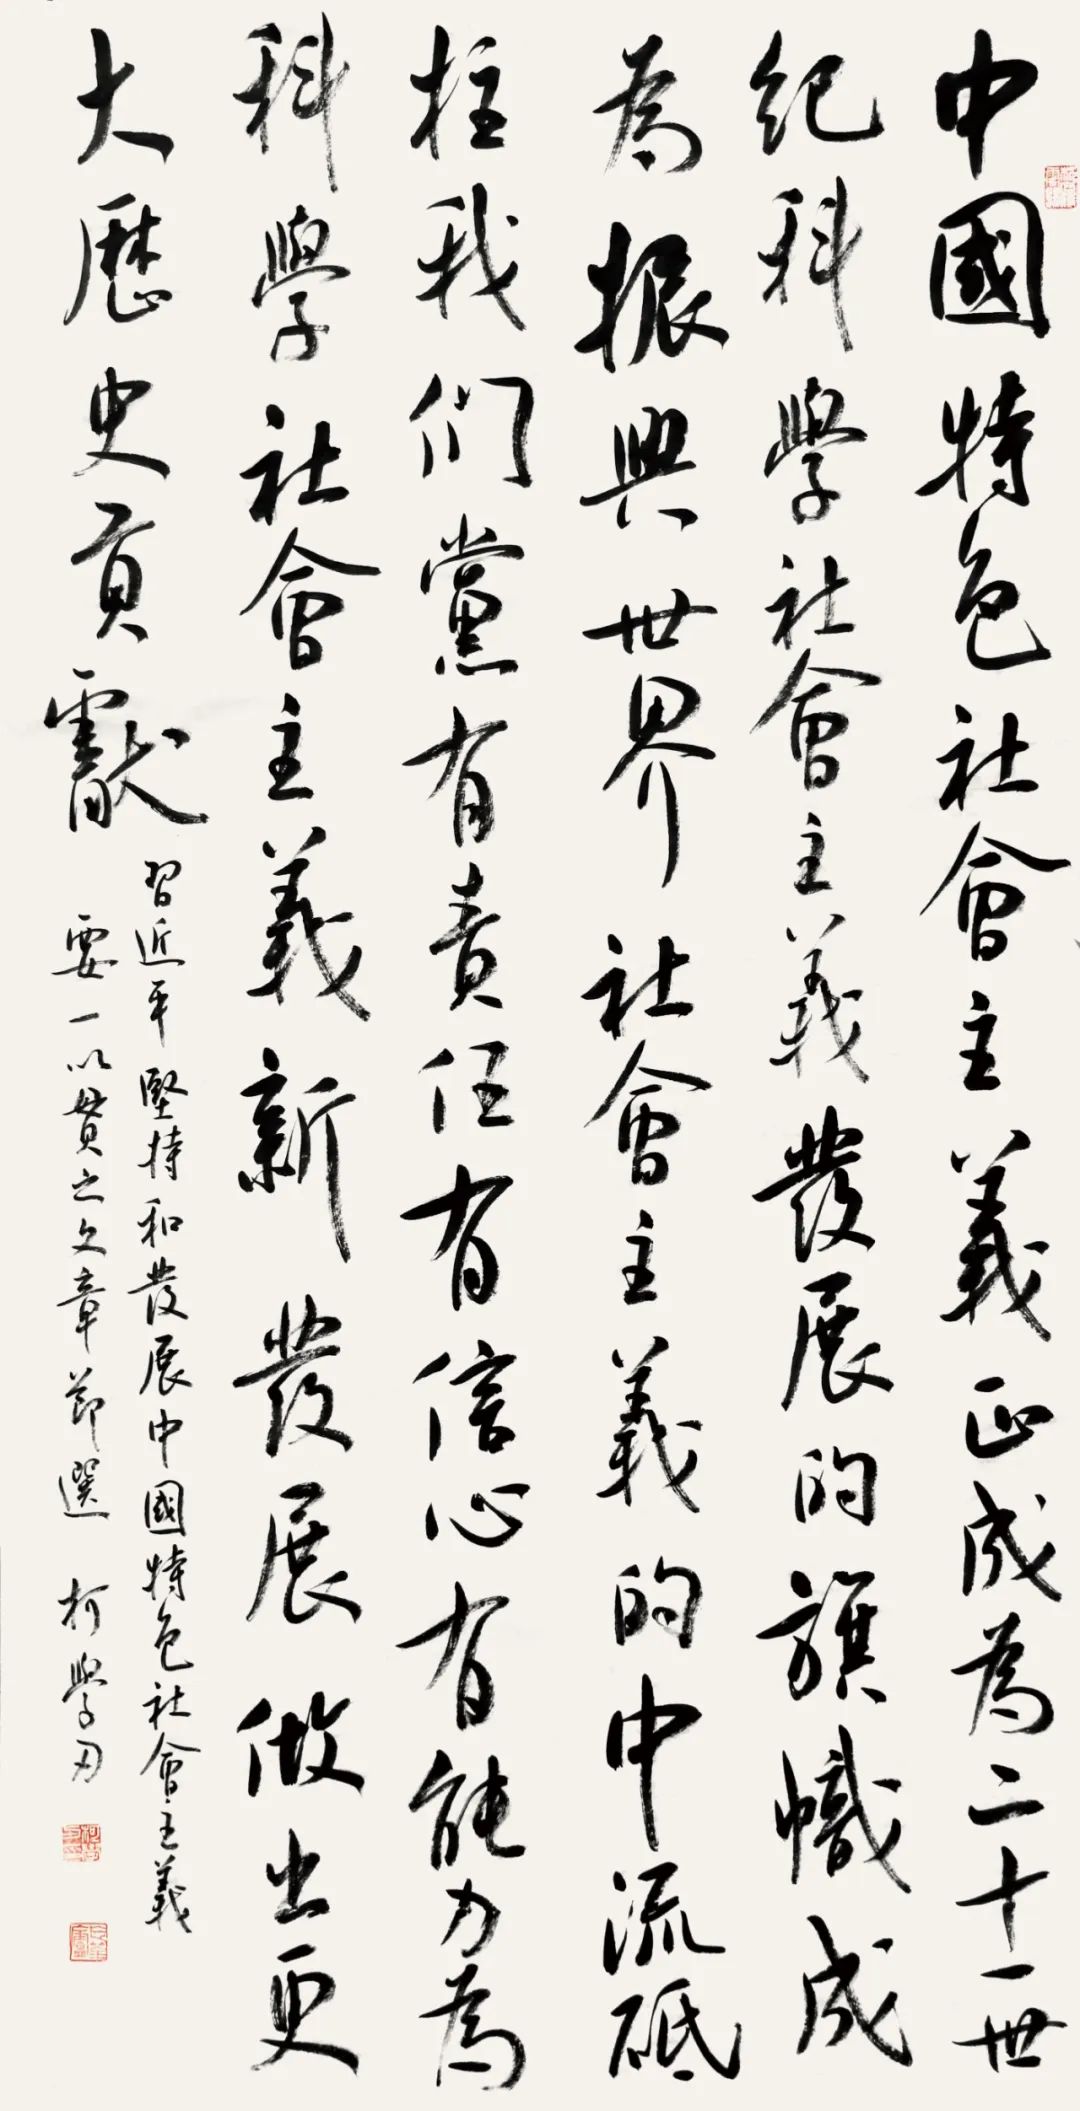 中國特色社會主義正成為二十一世
紀科學社會主義發展的旗幟成
為振興世界社會主義的中流砥
柱我們黨有責任有信心有能力為
科學社會主義新發展做出更
大歷史貢獻
習近平堅持和發展中國特色社會主義
要一以貫之文章節選 柯學刃